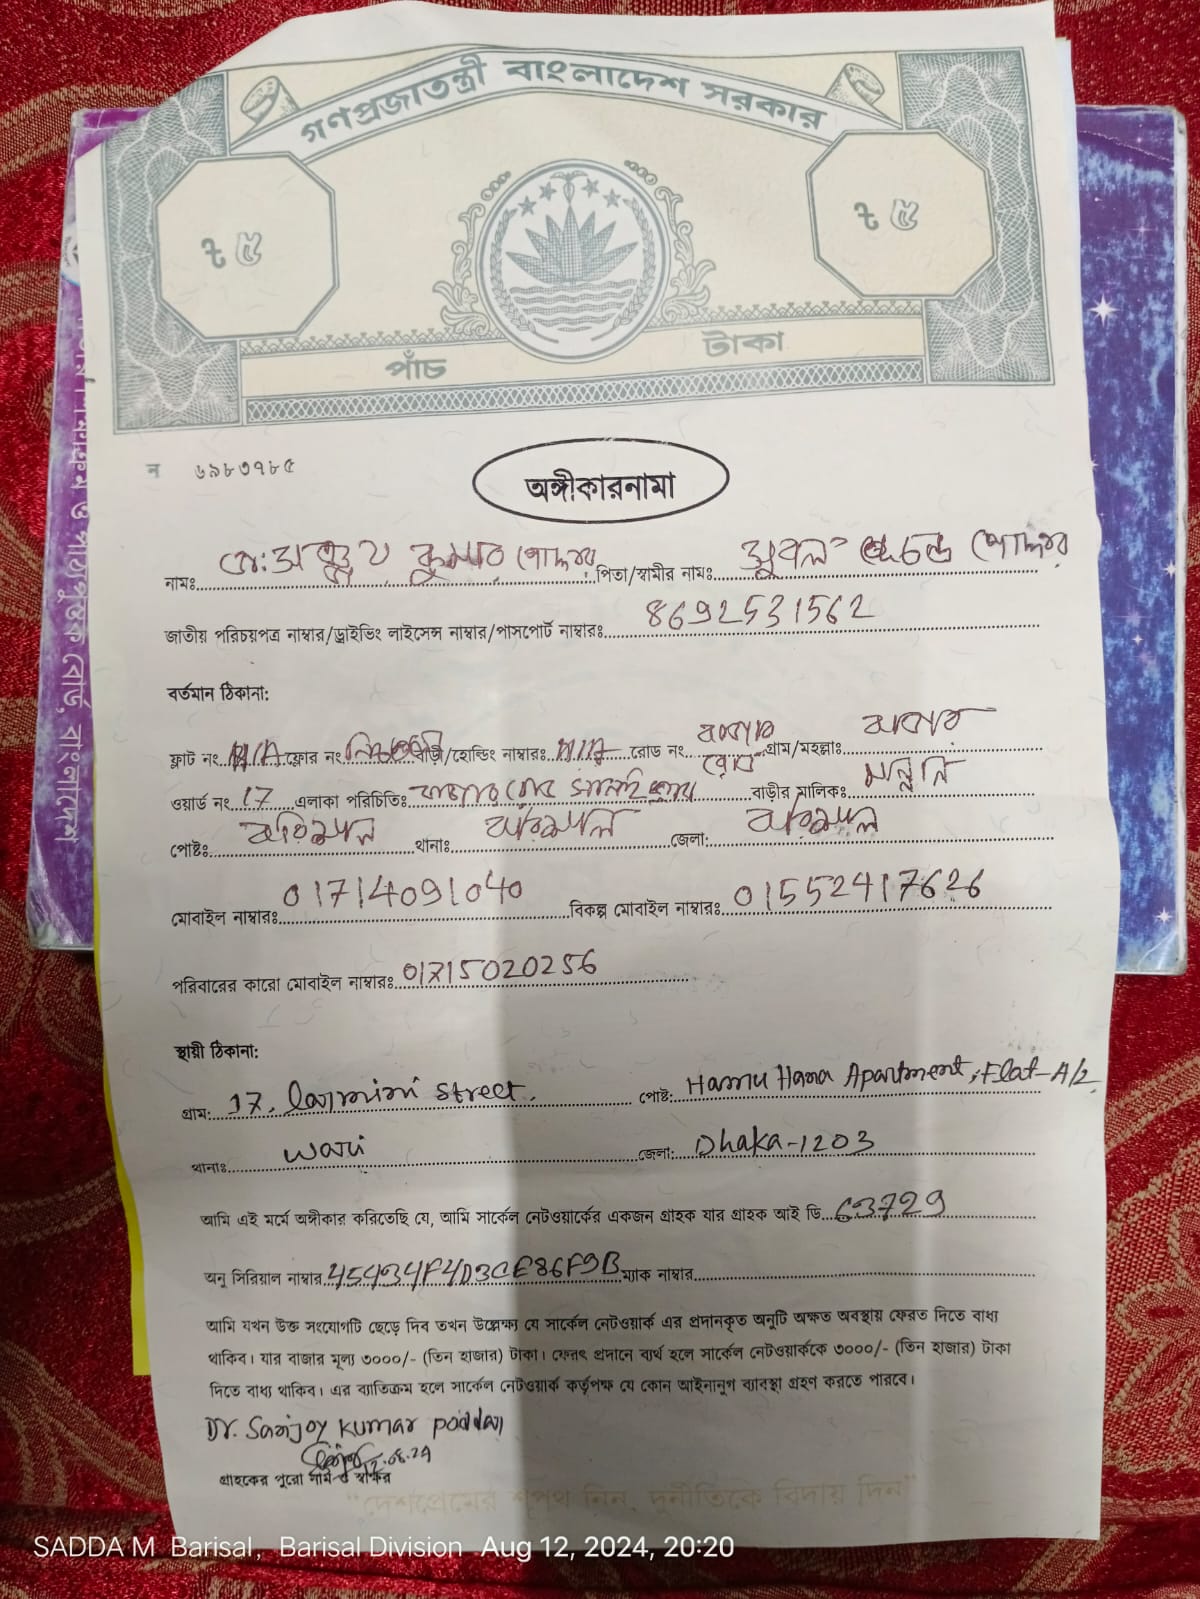 গণপ্রজাতন্ত্রী বাংলাদেশ সরকার
৳ ৫
৳ ৫
পাঁচ টাকা
ন ৬৯৮৩৭৮৫
অঙ্গীকারনামা
নামঃ ডাঃ কুমার পোদ্দার পিতা/স্বামীর নামঃ সুবল চন্দ্র পোদ্দার
জাতীয় পরিচয়পত্র নাম্বার/ড্রাইভিং লাইসেন্স নাম্বার/পাসপোর্ট নাম্বারঃ 8692531562
বর্তমান ঠিকানা:
ফ্লাট নং N/A ফ্লোর নং বাড়ী/হোল্ডিং নাম্বারঃ N/A রোড নং বাজার রোড গ্রাম/মহল্লাঃ বাজার
ওয়ার্ড নং 17 এলাকা পরিচিতিঃ বাজার রোড বাড়ীর মালিকঃ
পোষ্টঃ বরিশাল থানাঃ বরিশাল জেলা: বরিশাল
মোবাইল নাম্বারঃ 01714091040 বিকল্প মোবাইল নাম্বারঃ 01552417626
পরিবারের কারো মোবাইল নাম্বারঃ 01715020256
স্থায়ী ঠিকানা:
গ্রাম: 17, larmini street, পোষ্ট: Hasnu Hana Apartment, Flat-A/2
থানাঃ wari জেলা: Dhaka-1203
আমি এই মর্মে অঙ্গীকার করিতেছি যে, আমি সার্কেল নেটওয়ার্কের একজন গ্রাহক যার গ্রাহক আই ডি C3729
অনু সিরিয়াল নাম্বার 45434F4D3CE86F9B ম্যাক নাম্বার
আমি যখন উক্ত সংযোগটি ছেড়ে দিব তখন উল্লেখ্য যে সার্কেল নেটওয়ার্ক এর প্রদানকৃত অনুটি অক্ষত অবস্থায় ফেরত দিতে বাধ্য
থাকিব। যার বাজার মূল্য ৩০০০/- (তিন হাজার) টাকা। ফেরৎ প্রদানে ব্যর্থ হলে সার্কেল নেটওয়ার্ককে ৩০০০/- (তিন হাজার) টাকা
দিতে বাধ্য থাকিব। এর ব্যতিক্রম হলে সার্কেল নেটওয়ার্ক কর্তৃপক্ষ যে কোন আইনানুগ ব্যাবস্থা গ্রহণ করতে পারবে।
Dr. Sanjoy Kumar Poddar
12.08.24
গ্রাহকের পুরো নাম ও স্বাক্ষর
"দেশপ্রেমের শপথ নিন, দুর্নীতিকে বিদায় দিন"
পাঠ্যপুস্তক বোর্ড, বাংলাদেশ
SADDA M Barisal, Barisal Division Aug 12, 2024, 20:20